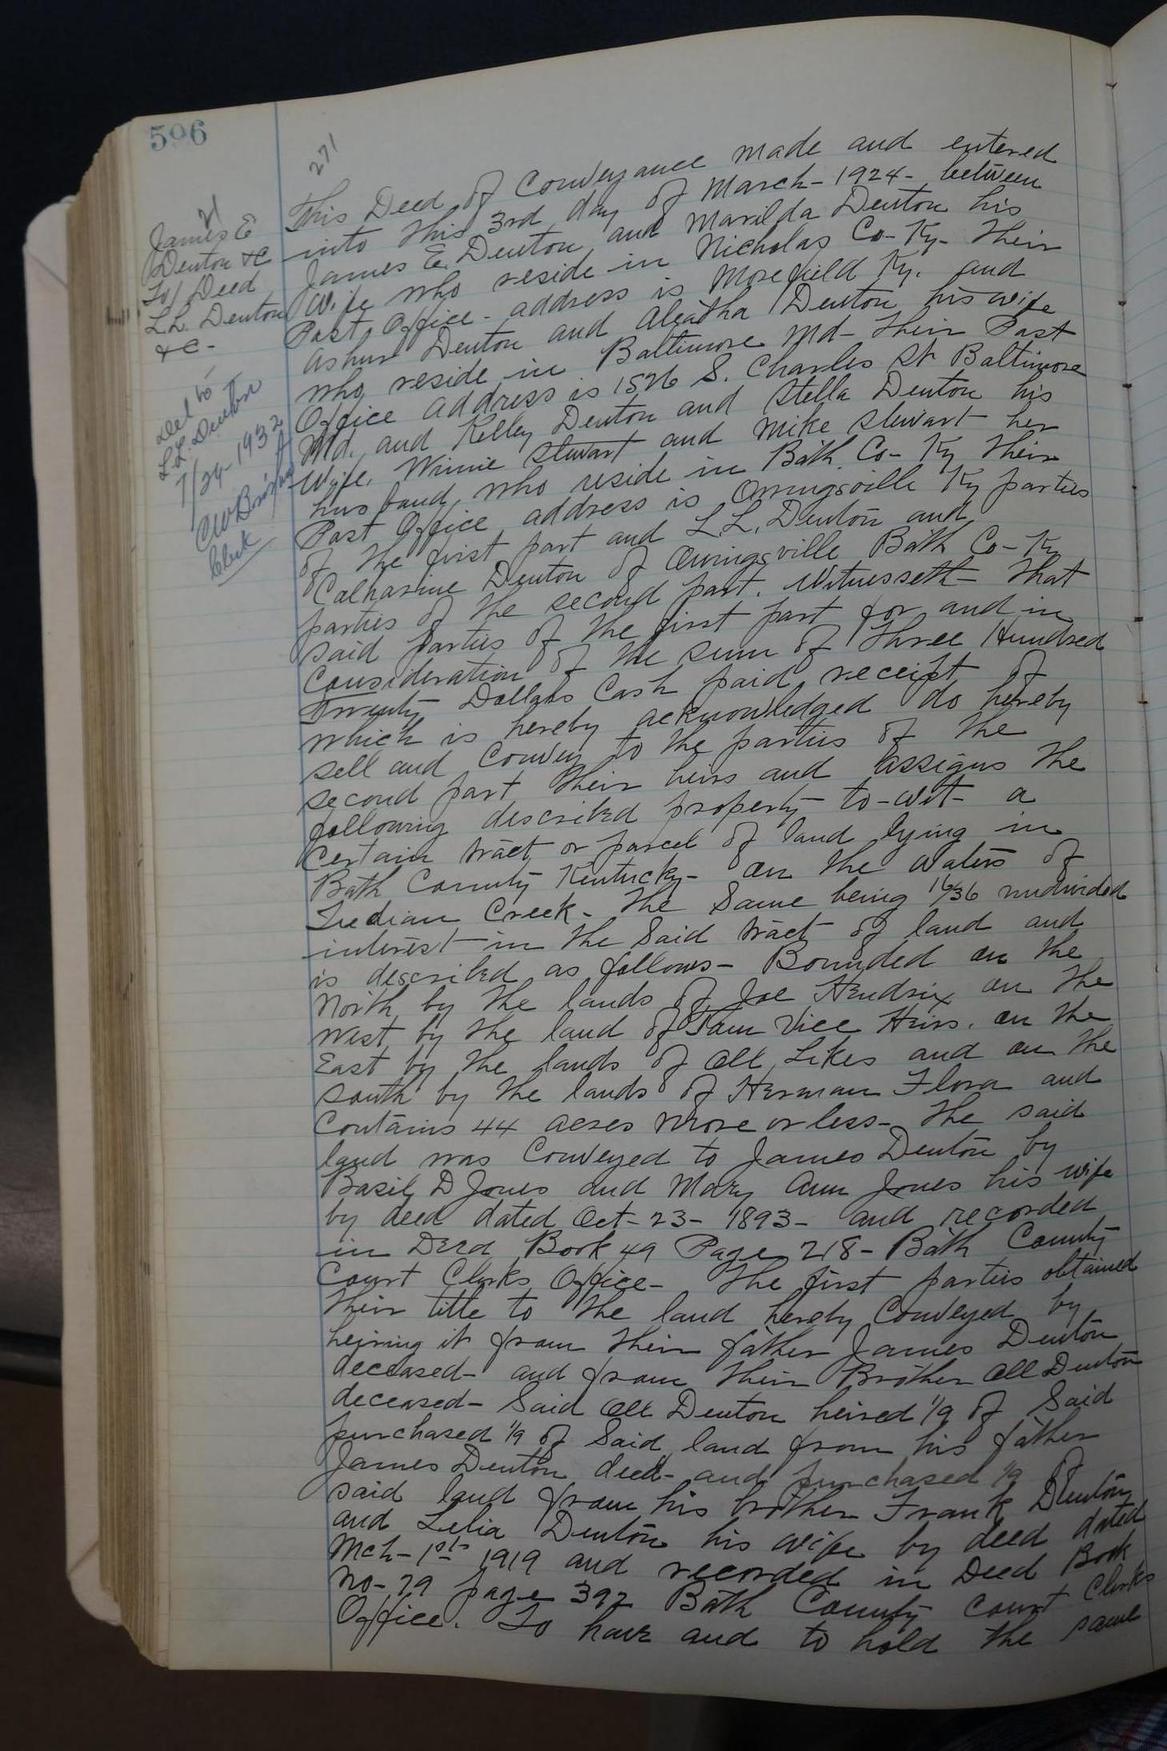 596
271
21
James E
Denton &C
To/ Deed
L.L. Denton
&C -
Del to
L.L. Denton
7/24-1932
CW Bright
Clerk
This Deed of Conveyance made and entered
into this 3rd day of March - 1924 - between
James E. Denton and Marilda Denton his
Wife who reside in Nicholas Co - Ky - Their
Post Office - address is Morefield Ky. and
Ashur Denton and Aleatha Denton his wife
who reside in Baltimore Md - Their Post
Office address is 1526 S. Charles St Baltimore
Md. and Kelley Denton and Stella Denton his
Wife. Winnie Stewart and Mike Stewart her
husband, who reside in Bath Co - Ky Their
Post Office address is Owingsville Ky parties
of the first part and L.L. Denton and
Catharine Denton of Owingsville Bath Co - Ky
parties of the second part. Witnesseth - That
said parties of the first part for and in
Consideration of the sum of Three Hundred
Twenty Dollars Cash paid, receipt of
which is hereby acknowledged do hereby
sell and Convey to the parties of the
second part their heirs and assigns the
following described property - to-wit - a
Certain tract or parcel of land lying in
Bath County Kentucky - on the waters of
Indian Creek - The Same being 16/36 undivided
interest in the Said tract of land and
is described as follows - Bounded on the
North by the lands of Joe Hendrix on the
West by the land of Tom Vice Heirs. on the
East by the lands of All Likes and on the
South by the lands of Herman Flora and
Contains 44 acres more or less - The said
land was Conveyed to James Denton by
Basil D Jones and Mary Ann Jones his wife
by deed dated Oct - 23 - 1893 - and recorded
in Deed Book 49 Page 218 - Bath County
Court Clerks Office - The first parties obtained
their title to the land hereby Conveyed by
heiring it from their father James Denton
deceased - and from their Brother All Denton
deceased - Said All Denton heired 1/9 of Said
purchased 1/9 of Said land from his father
James Denton decd - and purchased 1/9 of
said land from his brother Frank Denton
and Lelia Denton his wife by deed dated
Mch - 1st 1919 and recorded in Deed Book
No - 79 page 392 Bath County Court Clerks
Office. To have and to hold the same